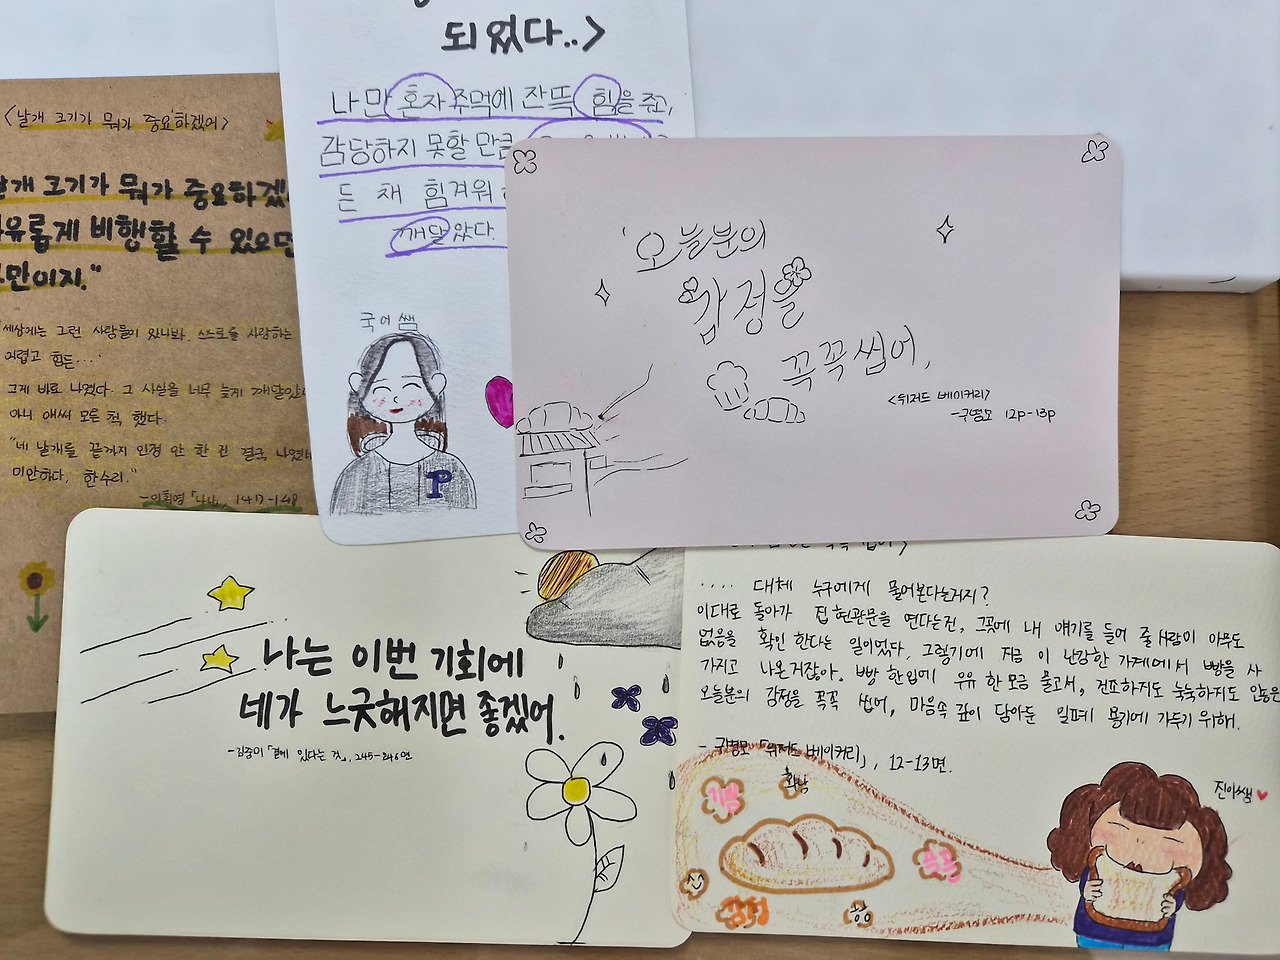 <날개 크기가 뭐가 중요하겠어>
날개 크기가 뭐가 중요하겠
자유롭게 비행할 수 있으면
그만이지."
"세상에는 그런 사람들이 있나봐. 스스로를 사랑하는
어렵고 힘든...'
그게 바로 나였다. 그 사실을 너무 늦게 깨달았
아니 애써 모른 척 했다.
"네 날개를 끝까지 인정 안 한 건 결국 나였네
미안하다, 한수리."
-이희영 「나나」 147-148
되었다..>
나만 혼자 주먹에 잔뜩 힘을 주고,
감당하지 못할 만큼
든 채 힘겨워
깨달았다.
국어쌤
P
'오늘분의
감정을
꼭꼭 씹어,
<위저드 베이커리>
-구병모 12p-13p
나는 이번 기회에
네가 느긋해지면 좋겠어.
-김중미 「곁에 있다는 것」, 245-246면
꼭꼭 씹어>
.... 대체 누구에게 물어본다는거지?
이대로 돌아가 집 현관문을 연다는건, 그곳에 내 얘기를 들어 줄 사람이 아무도
없음을 확인 한다는 일이었다. 그렇기에 지금 이 난감한 가게에서 빵을 사
가지고 나온거잖아. 빵 한입에 우유 한 모금 물고서, 건조하지도 눅눅하지도 않은
오늘분의 감정을 꼭꼭 씹어, 마음속 깊이 담아둔 밀폐 용기에 가두기 위해.
- 구병모 「위저드 베이커리」, 12-13면.
진이쌤